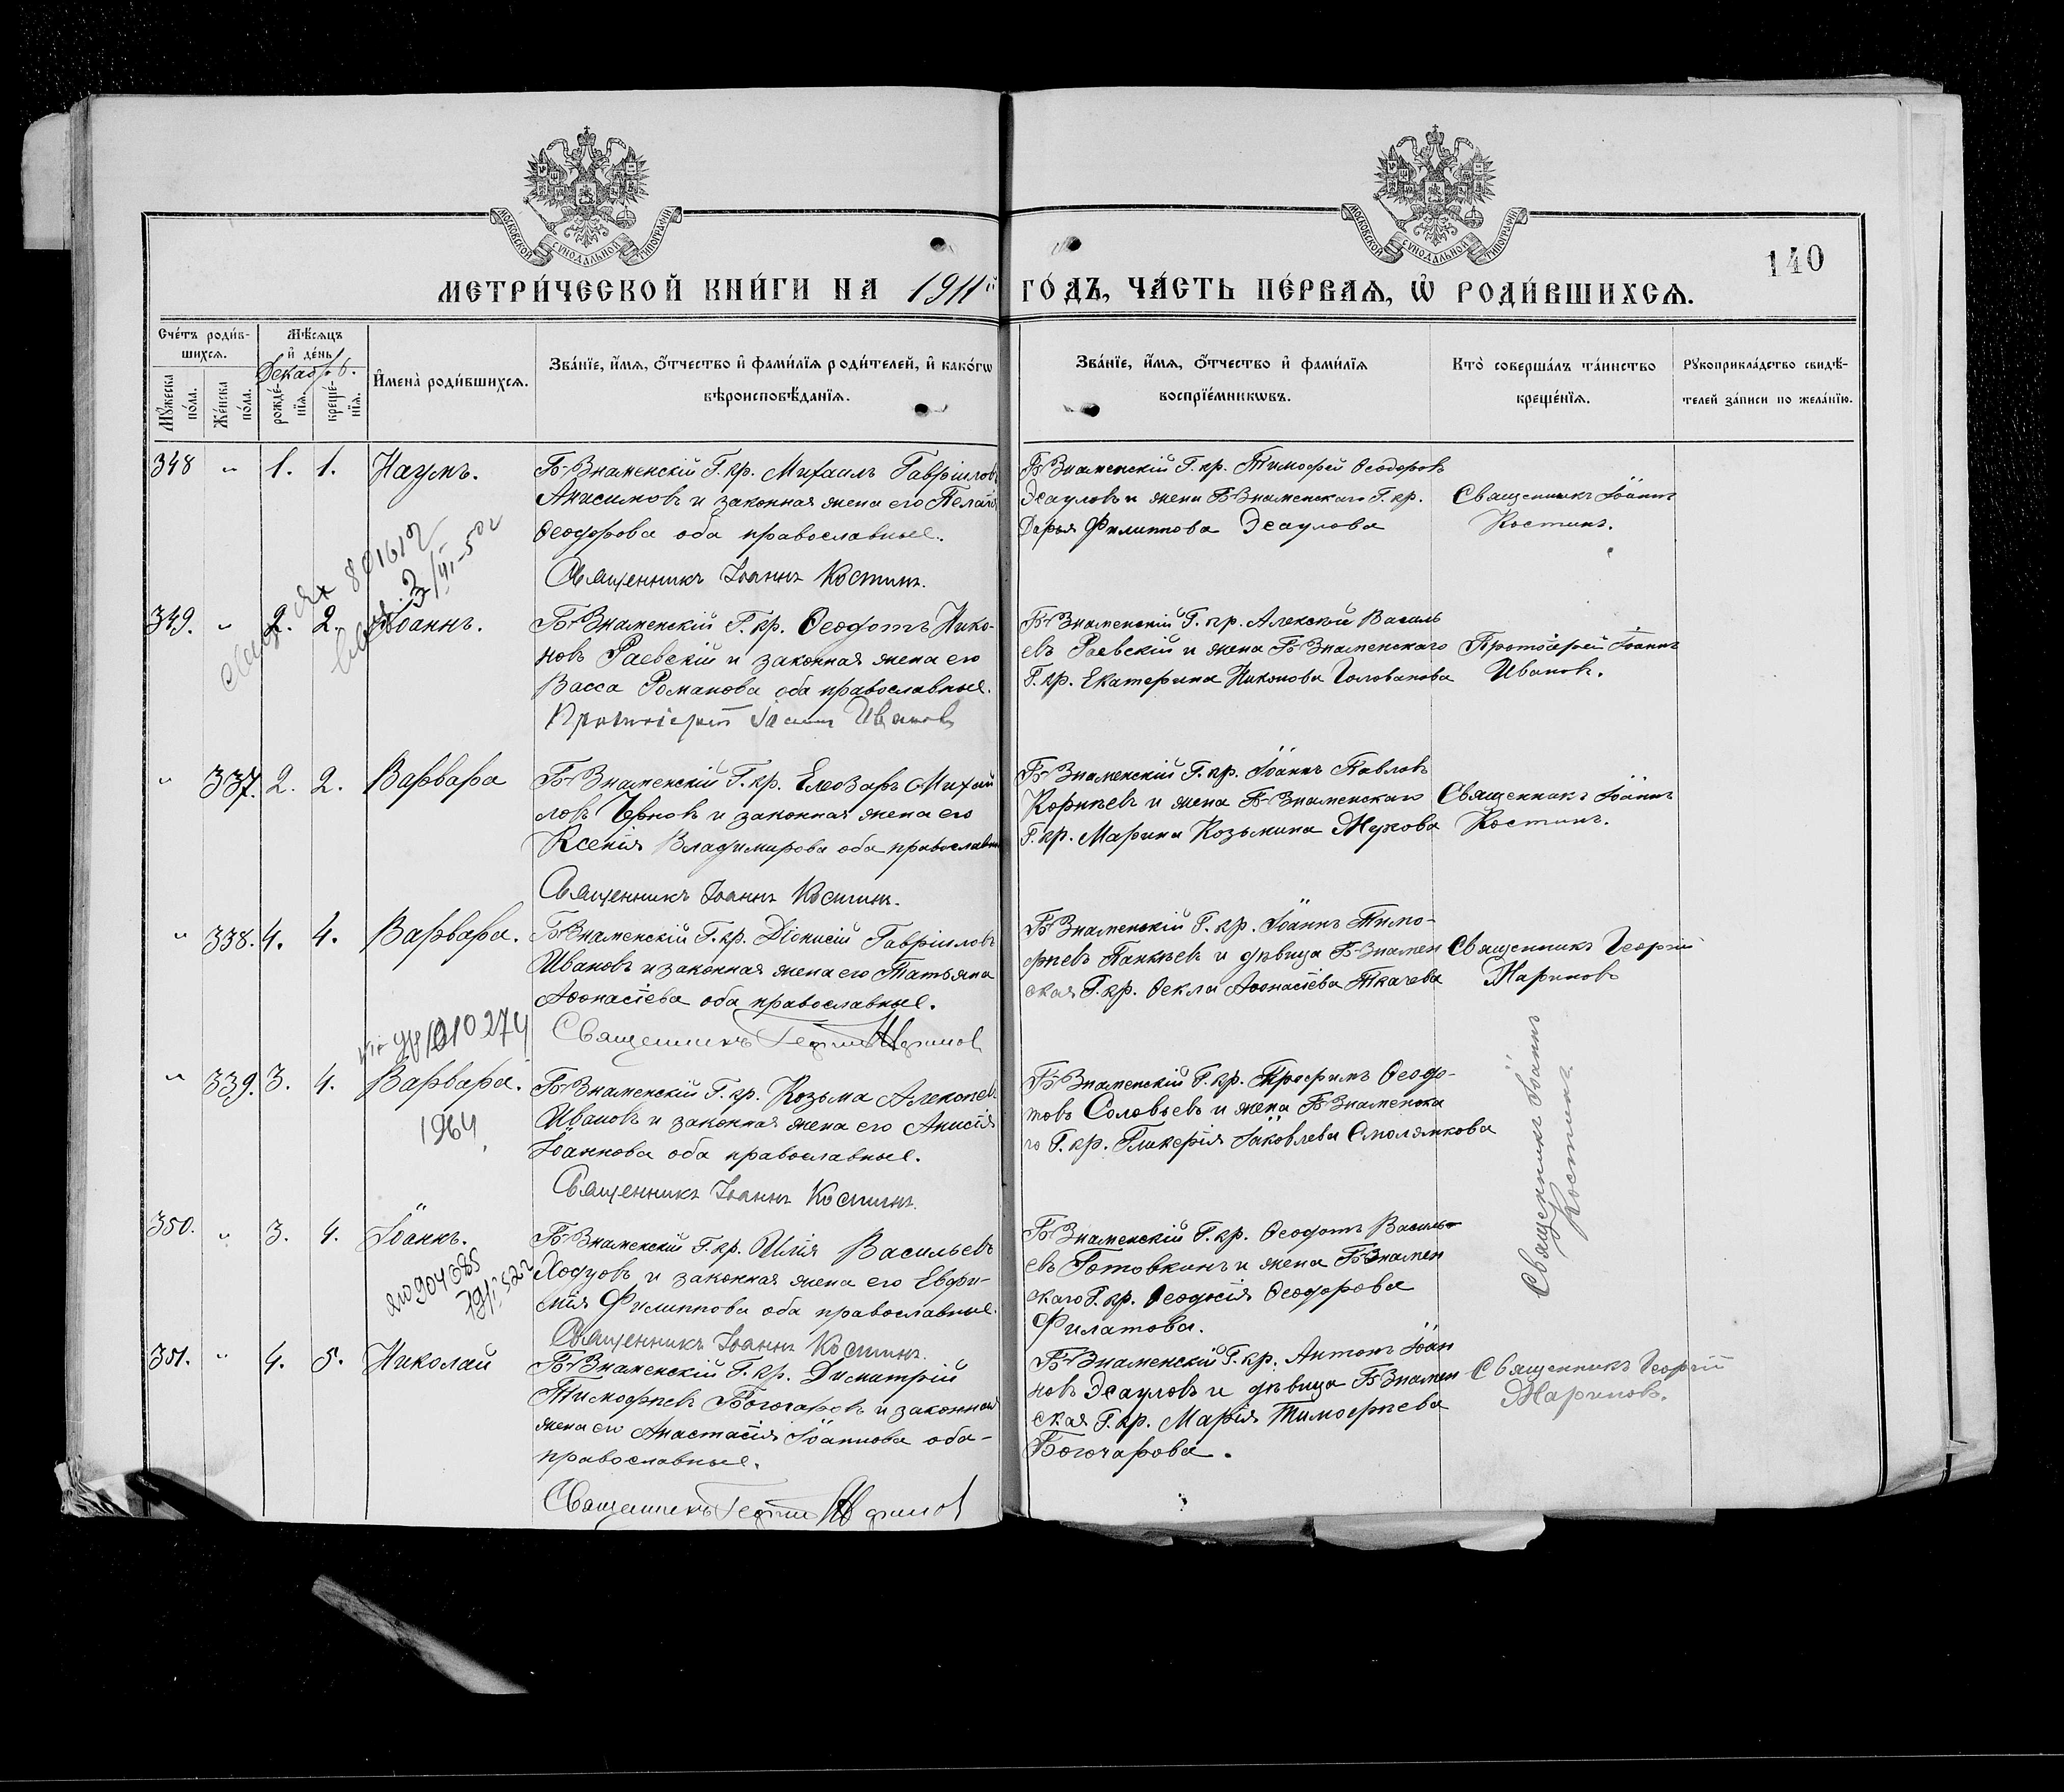 МОСКОВСКОЙ СѴНОДАЛЬНОЙ ТИПОГРАФІИ
МОСКОВСКОЙ СѴНОДАЛЬНОЙ ТИПОГРАФІИ
140
МЕТРИ́ЧЕСКОЙ КНИ́ГИ НА 1911й ГО́ДЪ, ЧА́СТЬ ПЕ́РВАѦ, Ѡ҆ РОДИ́ВШИХСѦ.
Сче́тъ роди́в-
шихсѧ.
Мꙋ́жеска по́ла.
Же́нска по́ла.
Мѣ́сѧцъ
и҆ де́нь
Декабрь.
рожде́-нїѧ.
креще́-нїѧ.
И҆мена̀ роди́вшихсѧ.
Зва́нїе, и҆́мѧ, ѻ҆́тчество и҆ фами́лїѧ роди́телей, и҆ како́гѡ
вѣроисповѣ́данїѧ.
Зва́нїе, и҆́мѧ, ѻ҆́тчество и҆ фами́лїѧ
воспрїе́мникѡвъ.
Кто̀ соверша́лъ та́инство
креще́нїѧ.
Рꙋкоприкла́дство свидѣ́-
телей за́писи по жела́нїю.
348 " 1. 1. Наумъ.
Б-Знаменскій Г. кр. Михаилъ Гавріиловъ
Анисимовъ и законная жена его Пелагія
Ѳеодорова оба православные.
Священникъ Іоаннъ Костинъ.
Б-Знаменскій Г. кр. Тимофей Ѳеодоровъ
Эсауловъ и жена Б-Знаменскаго Г. кр.
Дарья Филиппова Эсаулова
Священникъ Іоаннъ
Костинъ.
801612
349. " 2. 2. Іоаннъ.
Б-Знаменскій Г. кр. Ѳеодотъ Нико-
новъ Раевскій и законная жена его
Васса Романова оба православные.
Протоіерей Іоаннъ Ивановъ
Б-Знаменскій Г. кр. Алексѣй Василь
евъ Раевскій и жена Б-Знаменскаго
Г. кр. Екатерина Никонова Голованова
Протоіерей Іоаннъ
Ивановъ.
" 337. 2. 2. Варвара
Б-Знаменскій Г. кр. Елеозаръ Михай
ловъ Черновъ и законная жена его
Ксенія Владимирова оба православные
Священникъ Іоаннъ Костинъ.
Б-Знаменскій Г. кр. Іоаннъ Павловъ
Корнѣевъ и жена Б-Знаменскаго
Г. кр. Марина Козьмина Жукова
Священникъ Іоаннъ
Костинъ.
" 338. 4. 4. Варвара.
Б-Знаменскій Г. кр. Діонисій Гавріиловъ
Ивановъ и законная жена его Татьяна
Аѳонасіева оба православные.
Священникъ Георгій
Б-Знаменскій Г. кр. Іоаннъ Тимо-
фѣевъ Панкѣевъ и дѣвица Б-Знамен
ская Г. кр. Ѳекла Аѳонасіева Ткачева
Священникъ Георгій
010274
" 339. 3. 4. Варвара.
1964
Б-Знаменскій Г. кр. Козьма Алексѣевъ
Ивановъ и законная жена его Анисія
Іоаннова оба православные.
Священникъ Іоаннъ Костинъ.
Б-Знаменскій Г. кр. Трофимъ Ѳеодо-
товъ Соловьевъ и жена Б-Знаменска
го Г. кр. Гликерія Іаковлева Смолянкова
Священникъ Іоаннъ
Костинъ.
350. " 3. 4. Іоаннъ.
Б-Знаменскій Г. кр. Илія Васильевъ
Ходусовъ и законная жена его Евфи-
мія Филиппова оба православные.
Священникъ Іоаннъ Костинъ.
Б-Знаменскій Г. кр. Ѳеодотъ Василь
евъ Готовкинъ и жена Б-Знамен
скаго Г. кр. Ѳеодосія Ѳеодорова
Филатова.
351. " 4. 5. Николай
Б-Знаменскій Г. кр. Димитрій
Тимофѣевъ Богочаровъ и законная
жена его Анастасія Іоаннова оба-
православные.
Священникъ Георгій
Б-Знаменскій Г. кр. Антонъ Іоан
новъ Эсауловъ и дѣвица Б-Знамен
ская Г. кр. Марія Тимофѣева
Богочарова.
Священникъ Георгій